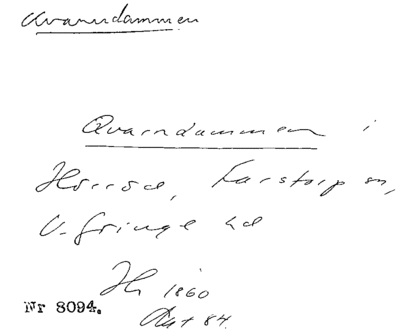 Kvarndammen
Qvarndammen i
Hörröd, Farstorp sn,
V. Göinge hd
Hy 1860
Akt 84.
Nr 8094.